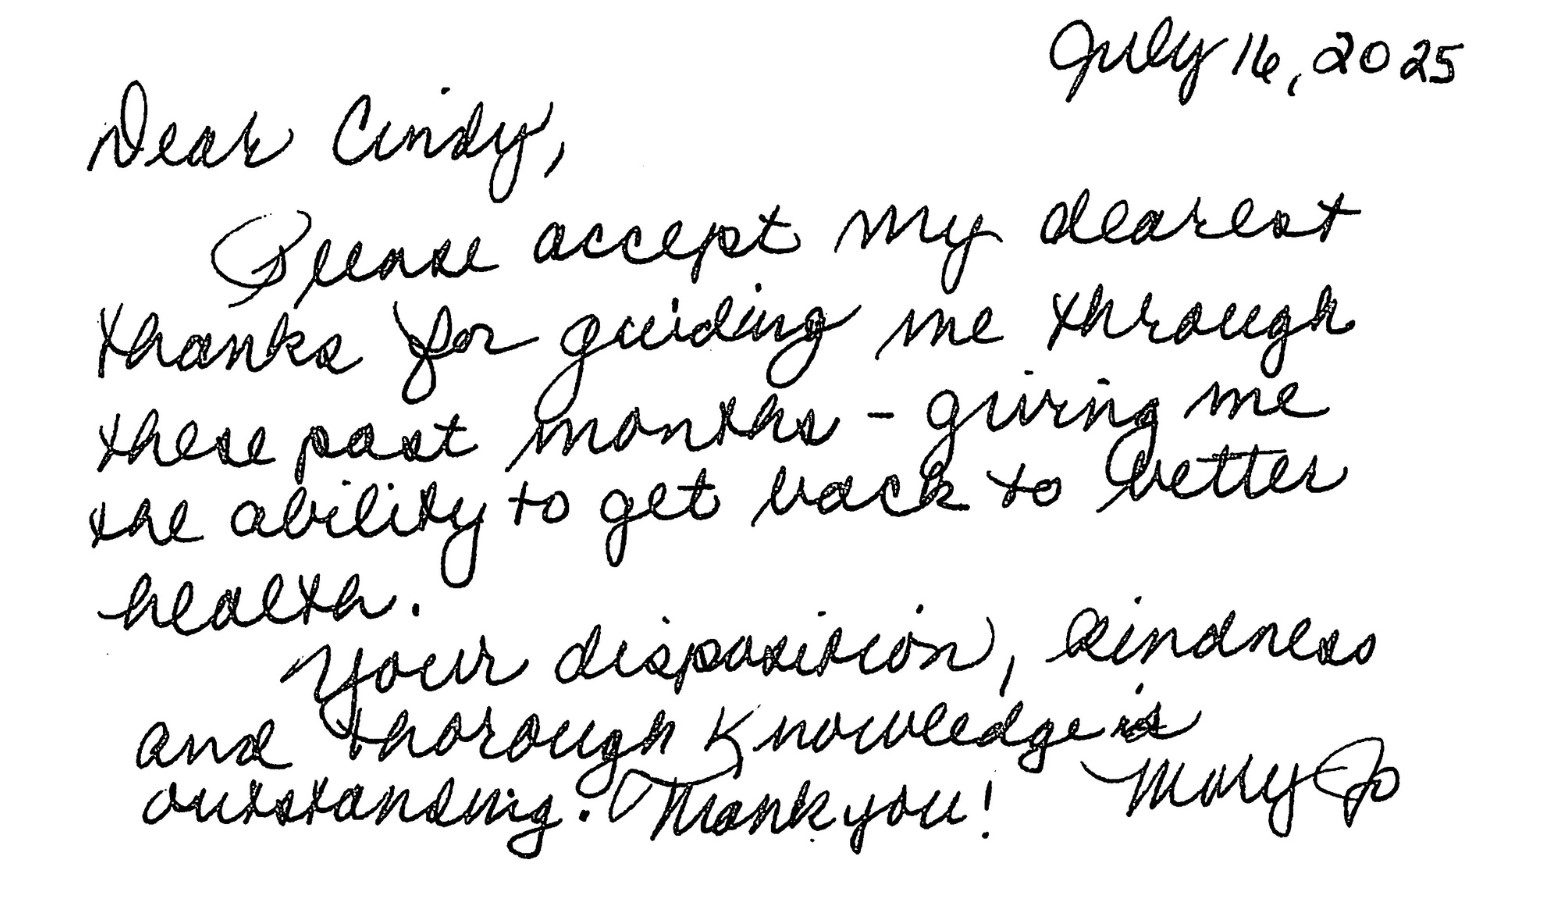 July 16, 2025
Dear Cindy,
Please accept my dearest
thanks for guiding me through
these past months - giving me
the ability to get back to better
health.
Your disposition, kindness
and thorough knowledge is
outstanding. Thank you! Mary Jo